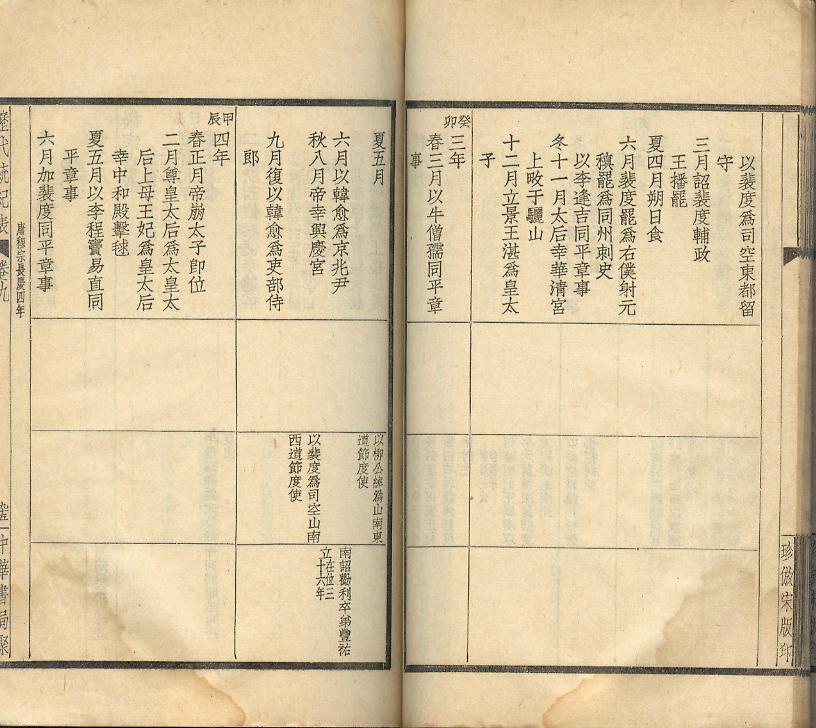 以裴度爲司空東都留
守
三月詔裴度輔政
王播罷
夏四月朔日食
六月裴度罷爲右僕射元
稹罷爲同州刺史
以李逢吉同平章事
冬十一月太后幸華清宮
上畋于驪山
十二月立景王湛爲皇太
子
癸卯
三年
春三月以牛僧孺同平章
事
珍倣宋版印
夏五月
六月以韓愈爲京兆尹
秋八月帝幸興慶宮
九月復以韓愈爲吏部侍
郎
以柳公綽爲山南東
道節度使
以裴度爲司空山南
西道節度使
南詔勸利卒弟豐祐
立在位三
十六年
甲辰
四年
春正月帝崩太子卽位
二月尊皇太后爲太皇太
后上母王妃爲皇太后
幸中和殿擊毬
夏五月以李程竇易直同
平章事
六月加裴度同平章事
唐穆宗長慶四年
歷代統紀表
卷九
中華書局聚